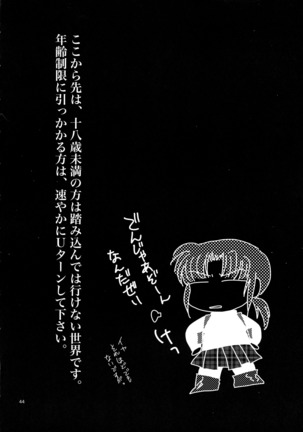 ここから先は、十八歳未満の方は踏み込んでは行けない世界です。
年齢制限に引っかかる方は、速やかにUターンして下さい。
でんじゃあぞーん
なんだぜい
けっ
44